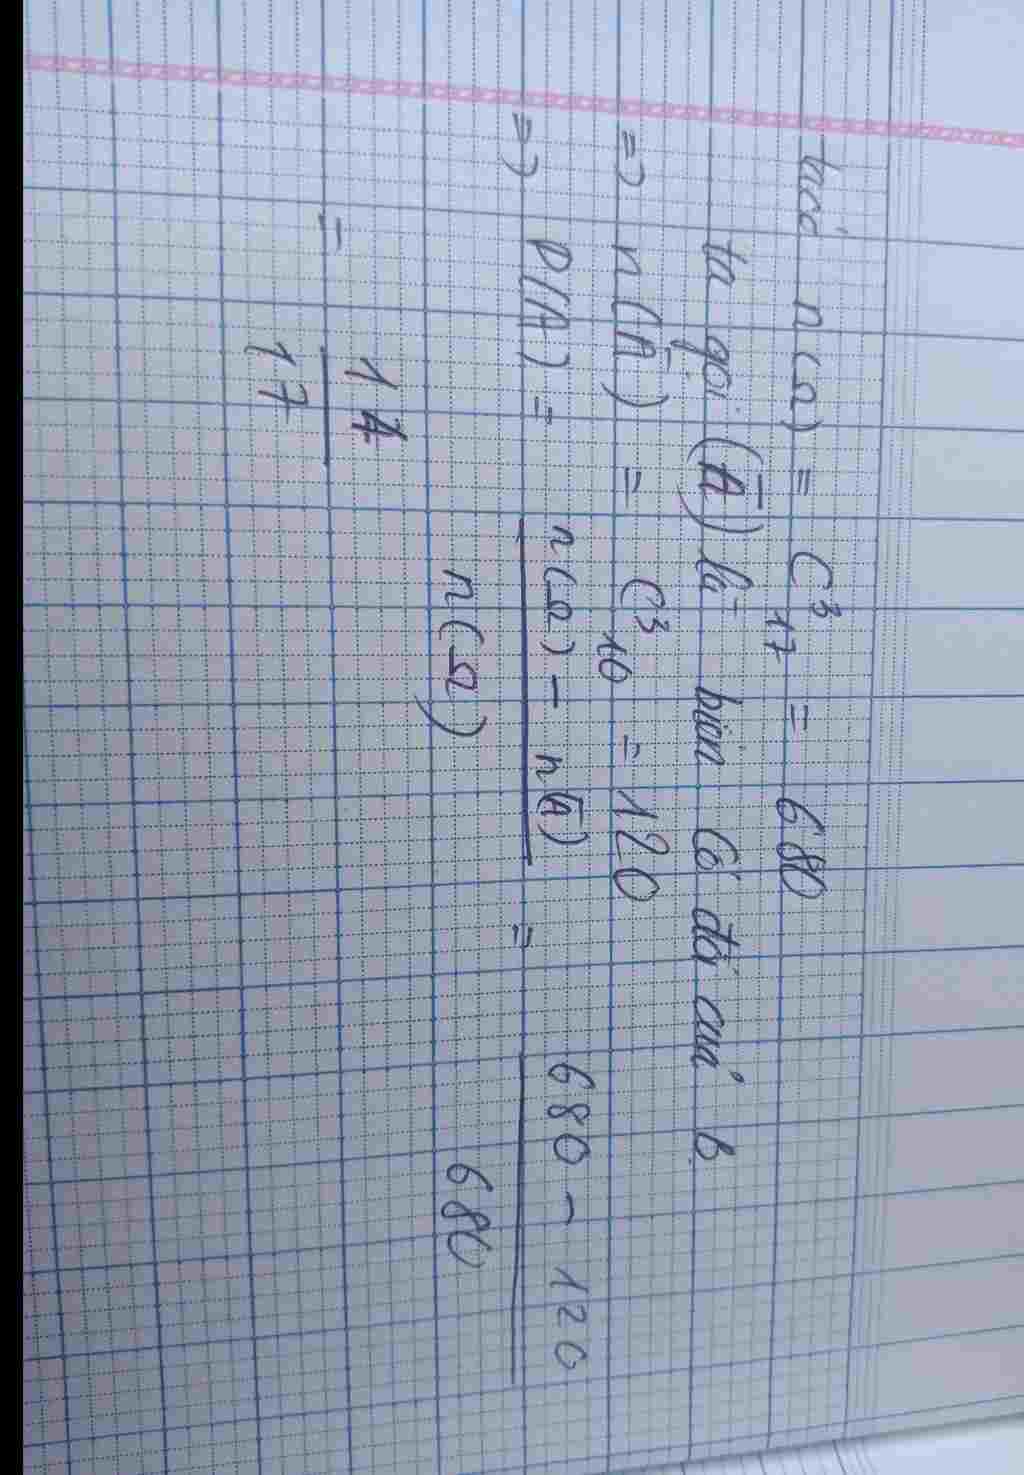 ta có n(Ω) = C³₁₇ = 680
ta gọi (A̅) là biến cố đối của b
=> n(A̅) = C³₁₀ = 120
=> P(A) = n(Ω) - n(A̅) / n(Ω) = 680 - 120 / 680
= 14 / 17